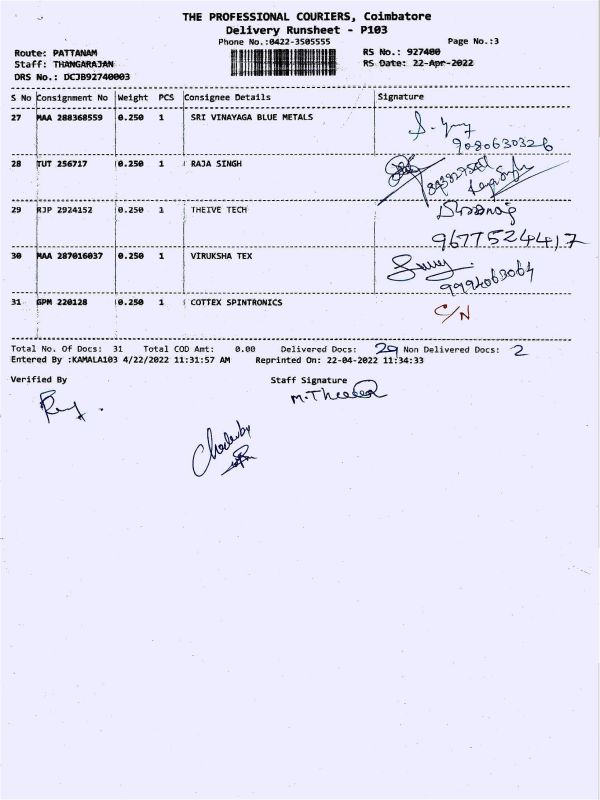 THE PROFESSIONAL COURIERS, Coimbatore
Delivery Runsheet - P103
Phone No.:0422-3505555
Page No.:3
Route: PATTANAM
RS No.: 927400
Staff: THANGARAJAN
RS Date: 22-Apr-2022
DRS No.: DCJB92740003
S No Consignment No Weight PCS Consignee Details Signature
27 MAA 288368559 0.250 1 SRI VINAYAGA BLUE METALS
9080630326
28 TUT 256717 0.250 1 RAJA SINGH
29 RJP 2924152 0.250 1 THEIVE TECH
9677524417
30 MAA 287016037 0.250 1 VIRUKSHA TEX
9994063064
31 GPM 220128 0.250 1 COTTEX SPINTRONICS C/N
Total No. Of Docs: 31 Total COD Amt: 0.00 Delivered Docs: 29 Non Delivered Docs: 2
Entered By :KAMALA103 4/22/2022 11:31:57 AM Reprinted On: 22-04-2022 11:34:33
Verified By Staff Signature